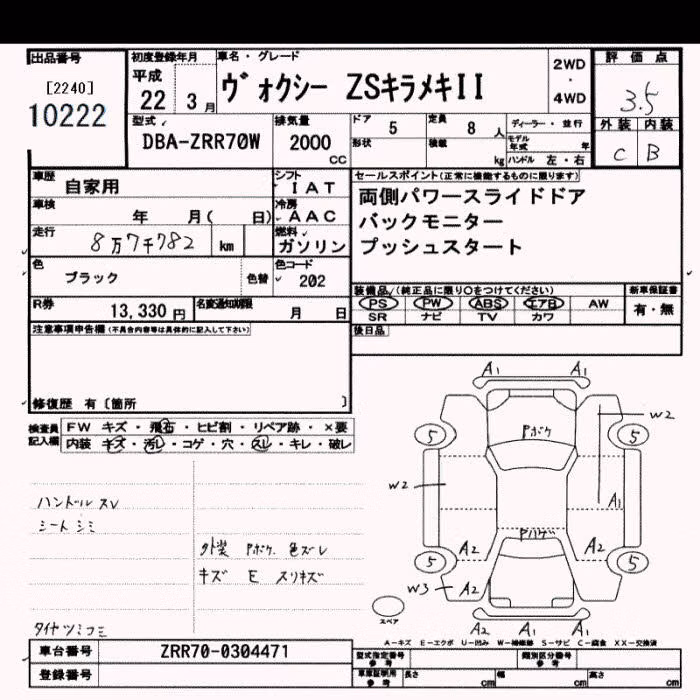 出品番号
[2240]
10222
初度登録年月
平成
22 3月
車名・グレード
ヴォクシー ZSキラメキII
2WD
・
4WD
評価点
3.5
外装 内装
C B
型式
DBA-ZRR70W
排気量
2000
CC
ドア 5
形状
定員 8 人
積載 kg
ディーラー・並行
モデル年式 年
ハンドル 左・右
車歴 自家用
シフト
IAT
車検 年 月( 日)
冷房
AAC
走行 8万7千782 km
燃料
ガソリン
色
ブラック
色替
色コード
202
R券 13,330 円
名変通知期限 月 日
セールスポイント(正常に機能するものに限ります)
両側パワースライドドア
バックモニター
プッシュスタート
装備品/(純正品に限り○をつけてください)
新車保証書
PS PW ABS エアB AW
有・無
SR ナビ TV カワ
後日品
注意事項申告欄(不具合内容等は具体的に記入して下さい)
修復歴 有 〔箇所
検査員
記入欄
FW キズ・飛石・ヒビ割・リペア跡・×要
内装 キズ・汚レ・コゲ・穴・スレ・キレ・破レ
ハンドル スレ
シート シミ
外装 Pボケ 色ズレ
キズ E スリキズ
タイヤツミコミ
A1 A1
W2
5 Pボケ 5
W2
A1
Pハゲ
A2 A2
5 5
W3 A2
A2 A1 A1
スペア
A-キズ E-エクボ U-凹み W-補修跡 S-サビ C-腐食 XX-交換済
車台番号 ZRR70-0304471
登録番号
型式指定番号
参考
類別区分番号
参考
車庫証明用
参考
長さ cm
幅 cm
高さ cm